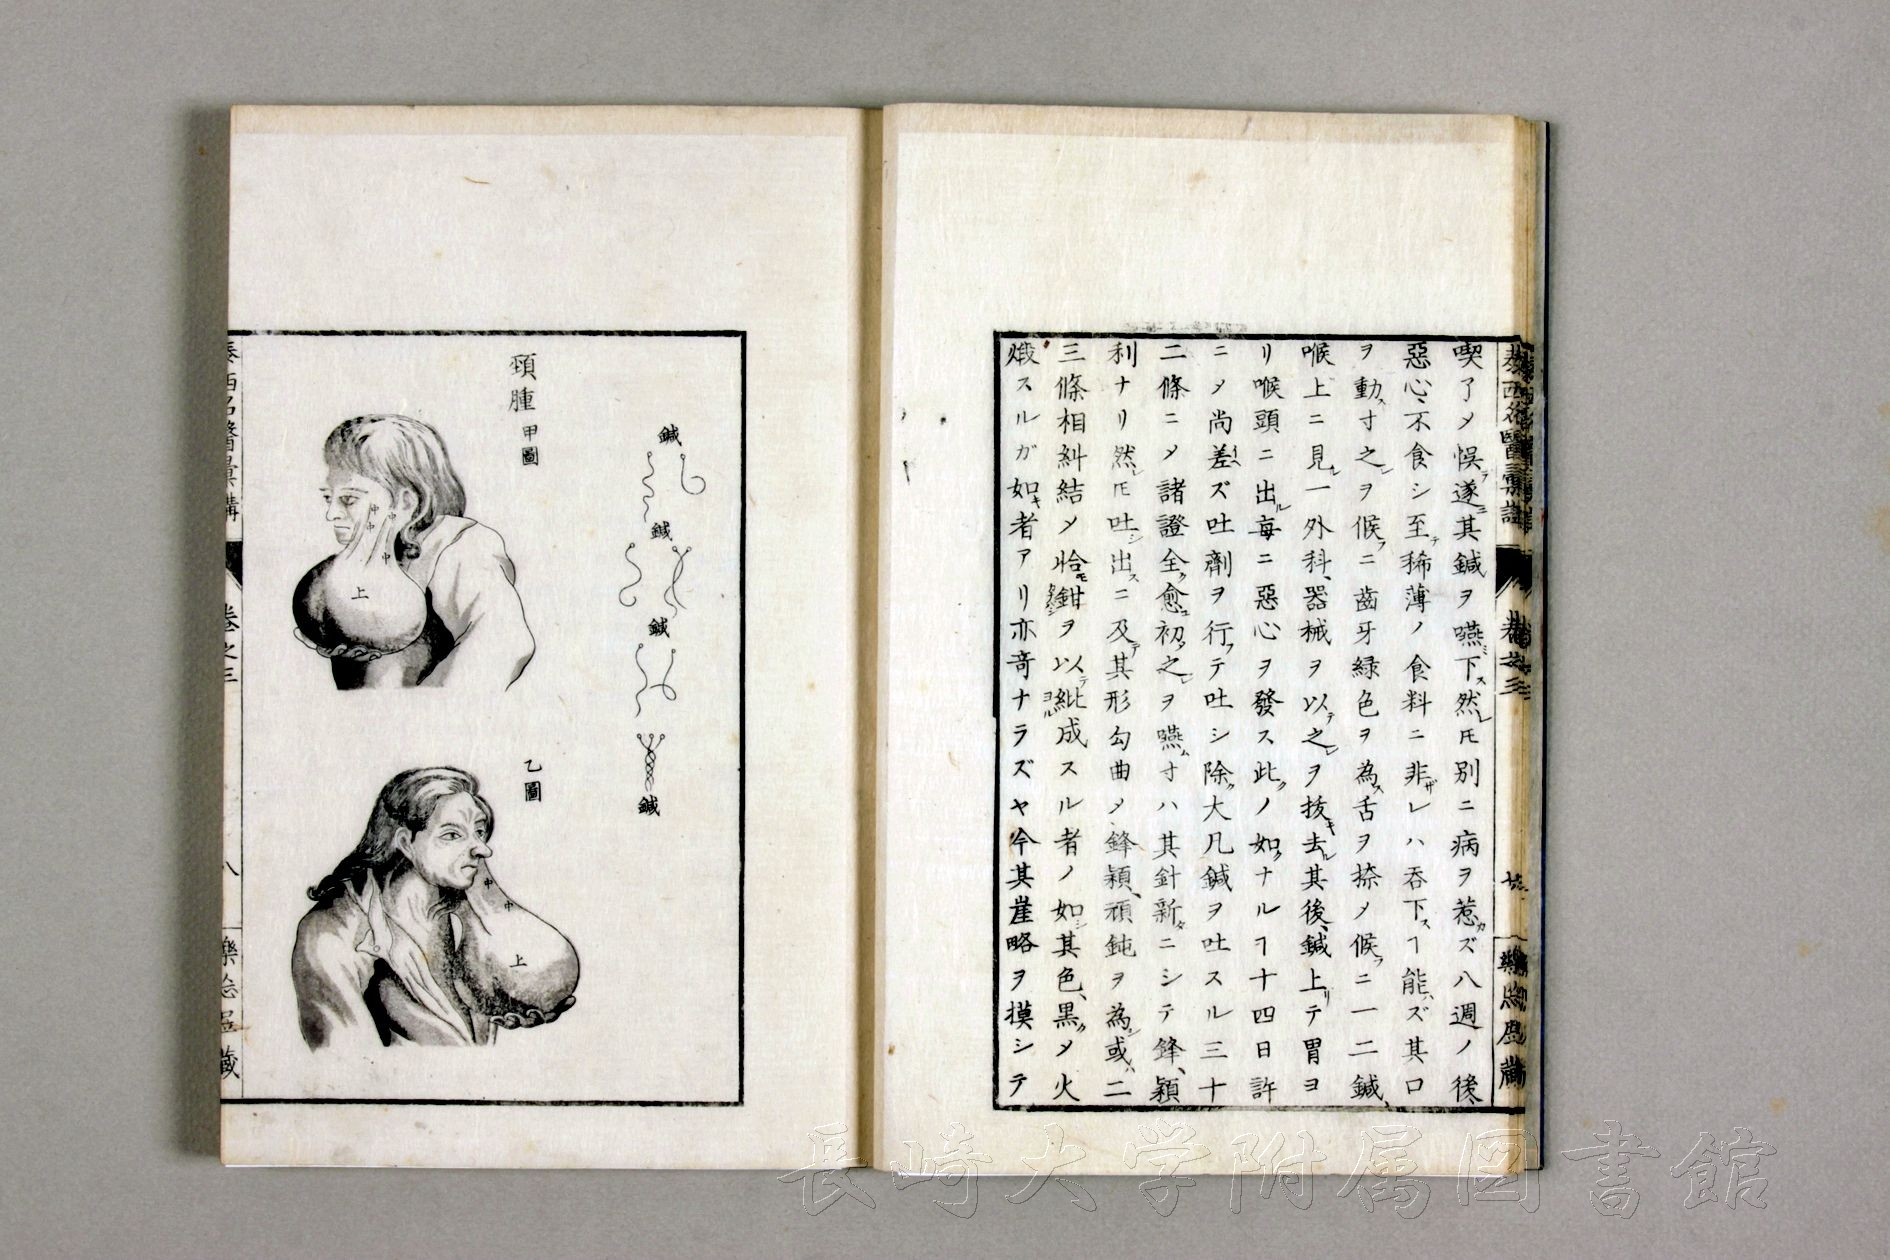 喫了メ悮テ遂ニ其鍼ヲ嚥ミ下ス然レ𪜈別ニ病ヲ惹カズ八週ノ後、
惡心、不食シ至テ稀薄ノ食料ニ非ザレハ吞下スヿ能ハズ其口
ヲ動ス寸之レヲ候フニ齒牙緑色ヲ為ス舌ヲ捺メ候フニ一二鍼、
喉上ニ見ル一外科、器械ヲ以テ之レヲ抜キ去ル其後、鍼上リテ胃ヨ
リ喉頭ニ出ル每ニ惡心ヲ發ス此クノ如クナルヿ十四日許
ニメ尚差ヘズ吐劑ヲ行フテ吐シ除ク大凡鍼ヲ吐スル三十
二條ニメ諸證全ク愈ユ初メ之レヲ嚥ム寸ハ其針新タニシテ鋒、穎
利ナリ然レ𪜈吐シ出スニ及テ其形勾曲メ鋒穎、頑鈍ヲ為シ或ハ二
三條相糾結メ恰モ鉗ヲ以テ紕成スル者ノ如シ其色、黒クメ火
燬スルガ如キ者アリ亦竒ナラズヤ今其崖略ヲ摸シテ
泰西名醫彙講
卷之三
樂𢙣居藏
鍼
鍼
鍼
鍼
頸腫
甲圖
中
中
中
中
上
乙圖
中
中
上
泰西名醫彙講
卷之三
八
長崎大学附属図書館